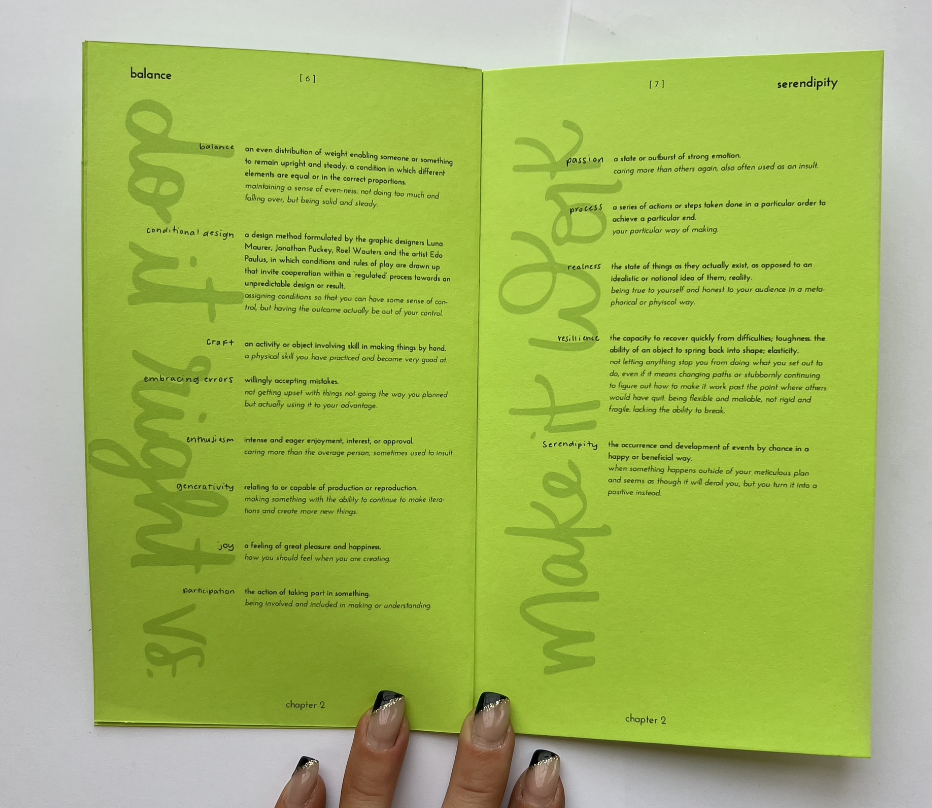 balance
[ 6 ]
do it right vs.
balance
an even distribution of weight enabling someone or something
to remain upright and steady. a condition in which different
elements are equal or in the correct proportions.
maintaining a sense of even-ness. not doing too much and
falling over, but being solid and steady.
conditional design
a design method formulated by the graphic designers Luna
Maurer, Jonathan Puckey, Roel Wouters and the artist Edo
Paulus, in which conditions and rules of play are drawn up
that invite cooperation within a 'regulated' process towards an
unpredictable design or result.
assigning conditions so that you can have some sense of con-
trol, but having the outcome actually be out of your control.
craft
an activity or object involving skill in making things by hand.
a physical skill you have practiced and become very good at.
embracing errors
willingly accepting mistakes.
not getting upset with things not going the way you planned
but actually using it to your advantage.
enthusiasm
intense and eager enjoyment, interest, or approval.
caring more than the average person, sometimes used to insult.
generativity
relating to or capable of production or reproduction.
making something with the ability to continue to make itera-
tions and create more new things.
joy
a feeling of great pleasure and happiness.
how you should feel when you are creating.
participation
the action of taking part in something.
being involved and included in making or understanding.
chapter 2
[ 7 ]
serendipity
make it work
passion
a state or outburst of strong emotion.
caring more than others again, also often used as an insult.
process
a series of actions or steps taken done in a particular order to
achieve a particular end.
your particular way of making.
realness
the state of things as they actually exist, as opposed to an
idealistic or notional idea of them; reality.
being true to yourself and honest to your audience in a meta-
phorical or phyiscal way.
resillience
the capacity to recover quickly from difficulties; toughness. the
ability of an object to spring back into shape; elasticity.
not letting anything stop you from doing what you set out to
do, even if it means changing paths or stubbornly continuing
to figure out how to make it work past the point where others
would have quit. being flexible and maliable, not rigid and
fragile. lacking the ability to break.
Serendipity
the occurrence and development of events by chance in a
happy or beneficial way.
when something happens outside of your meticulous plan
and seems as though it will derail you, but you turn it into a
positive instead.
chapter 2